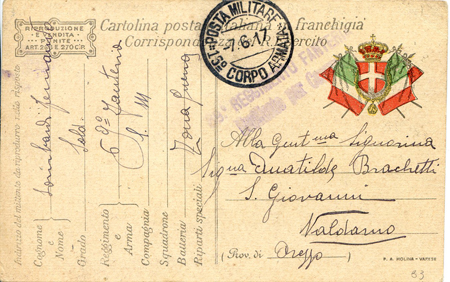 RIPRODUZIONE
E VENDITA
PUNITE
ART. 285 E 270 C.R.
Cartolina postale italiana in franchigia
Corrispondenza R. Esercito
POSTA MILITARE
7.6.17
CORPO ARMATA
REGGIMENTO
Alla Gent.ma Signorina
Sig.na Amatilde Brachetti
S. Giovanni
Valdarno
(Prov. di Arezzo
P. A. MOLINA - VARESE
83
Indirizzo del mittente da riprodurre sulla risposta
Cognome
e
Nome
Lombardi
Grado
Sold.
Reggimento
e
Arma
6° Fanteria
Compagnia
S. M
Squadrone
Batteria
Riparti speciali
Zona guerra